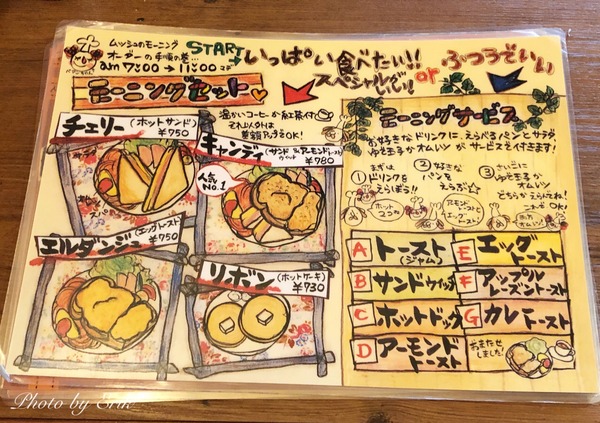 ムッシュのモーニング
オーダーの手順の巻…
am 7:00 → 11:00まで
START
いっぱい食べたい!!
スペシャルがいい!!
or
ふつうでいい
モーニングセット
温かいコーヒーか紅茶付
それ以外は
差額アップでOK!
チェリー (ホットサンド)
¥750
キャンディ (サンド &アーモンドトースト)
¥780
人気
No.1
エルダンジュ (エッグトースト)
¥750
リボン (ホットケーキ)
¥730
モーニングサービス
お好きなドリンクに、えらべるパンとサラダ
ゆで玉子かオムレツ がサービスで付きます!
まずは
① ドリンクを
えらぼう!!
② お好きな
パンを
えらぶ☆
③ さいごに
ゆで玉子か
オムレツ
どちらかえらんでね!
でOK!
ホット
2つね
アーモンド
トーストと
エッグ
トースト
A トースト
(ジャム)
B サンドウィッチ
C ホットドック
D アーモンド
トースト
E エッグ
トースト
F アップル
レーズントースト
G カレートースト
おまたせ
しました!
Photo by Erik